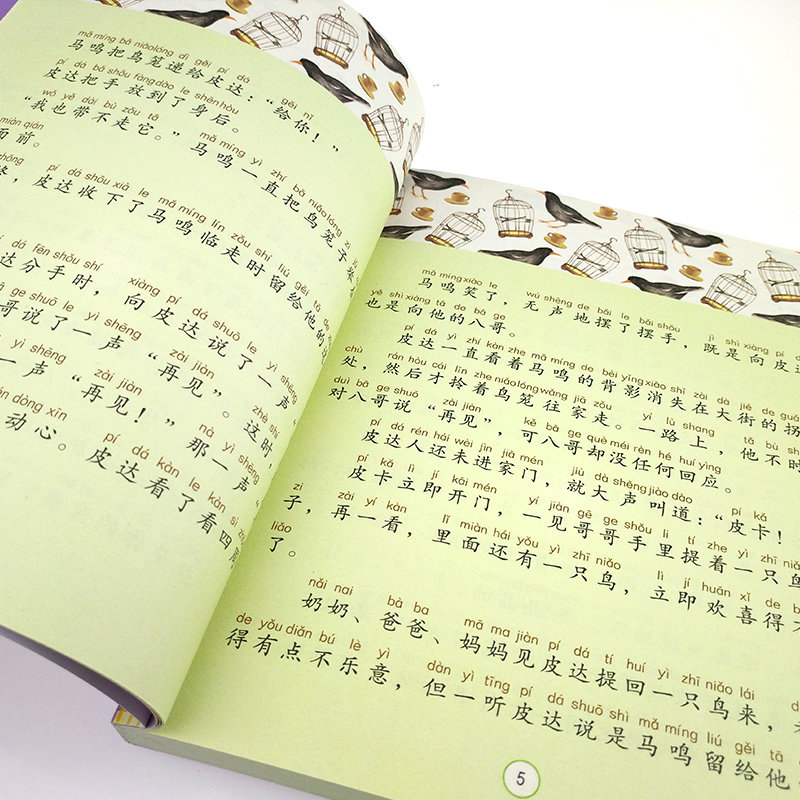 mǎ míng bǎ niǎolóng dì gěi pí dá gěi nǐ
马鸣把鸟笼递给皮达：“给你！”
pí dá bǎ shǒu fàngdào le shēnhòu
皮达把手放到了身后。
wǒ yě dài bù zǒu tā mǎ míng yì zhí bǎ niǎolóng zi
“我也带不走它。”马鸣一直把鸟笼子
miàn qián
面前。
pí dá shōu xià le mǎ míng lín zǒu shí liú gěi tā de
，皮达收下了马鸣临走时留给他的
dá fēn shǒu shí xiàng pí dá shuō le yì shēng
达分手时，向皮达说了一声“
ge shuō le yì shēng zài jiàn zhè shí
哥说了一声“再见”。这时，
yì shēng zài jiàn nà yì shēng
一声“再见！”那一声“
dòng xīn pí dá kàn le kàn sì
动心。皮达看了看四周
mǎ míng xiào le wú shēng de bǎi le bǎi shǒu jì shì xiàng pí
马鸣笑了，无声地摆了摆手，既是向皮达
yě shì xiàng tā de bā ge
也是向他的八哥。
pí dá yì zhí kàn zhe mǎ míng de bèi yǐng xiāo shī zài dà jiē de guǎi
皮达一直看着马鸣的背影消失在大街的拐
chù rán hòu cái līn zhe niǎolóng wǎng jiā zǒu yí lù shang tā bù shí
处，然后才拎着鸟笼往家走。一路上，他不时
duì bā ge shuō zài jiàn kě bā ge què méi rèn hé huí yìng
对八哥说“再见”，可八哥却没任何回应。
pí dá rén hái wèi jìn jiā mén jiù dà shēng jiào dào pí kǎ
皮达人还未进家门，就大声叫道：“皮卡！
pí kǎ lì jí kāi mén yí jiàn gē ge shǒu lǐ tí zhe yì zhī niǎo
皮卡立即开门，一见哥哥手里提着一只鸟
zi zài yí kàn lǐ miàn hái yǒu yì zhī niǎo lì jí huān xǐ de
子，再一看，里面还有一只鸟，立即欢喜得
liǎo
了。
nǎi nai bà ba mā ma jiàn pí dá tí huí yì zhī niǎo lái
奶奶、爸爸、妈妈见皮达提回一只鸟来，
de yǒu diǎn bú lè yì dàn yì tīng pí dá shuō shì mǎ míng liú gěi tā
得有点不乐意，但一听皮达说是马鸣留给他
5